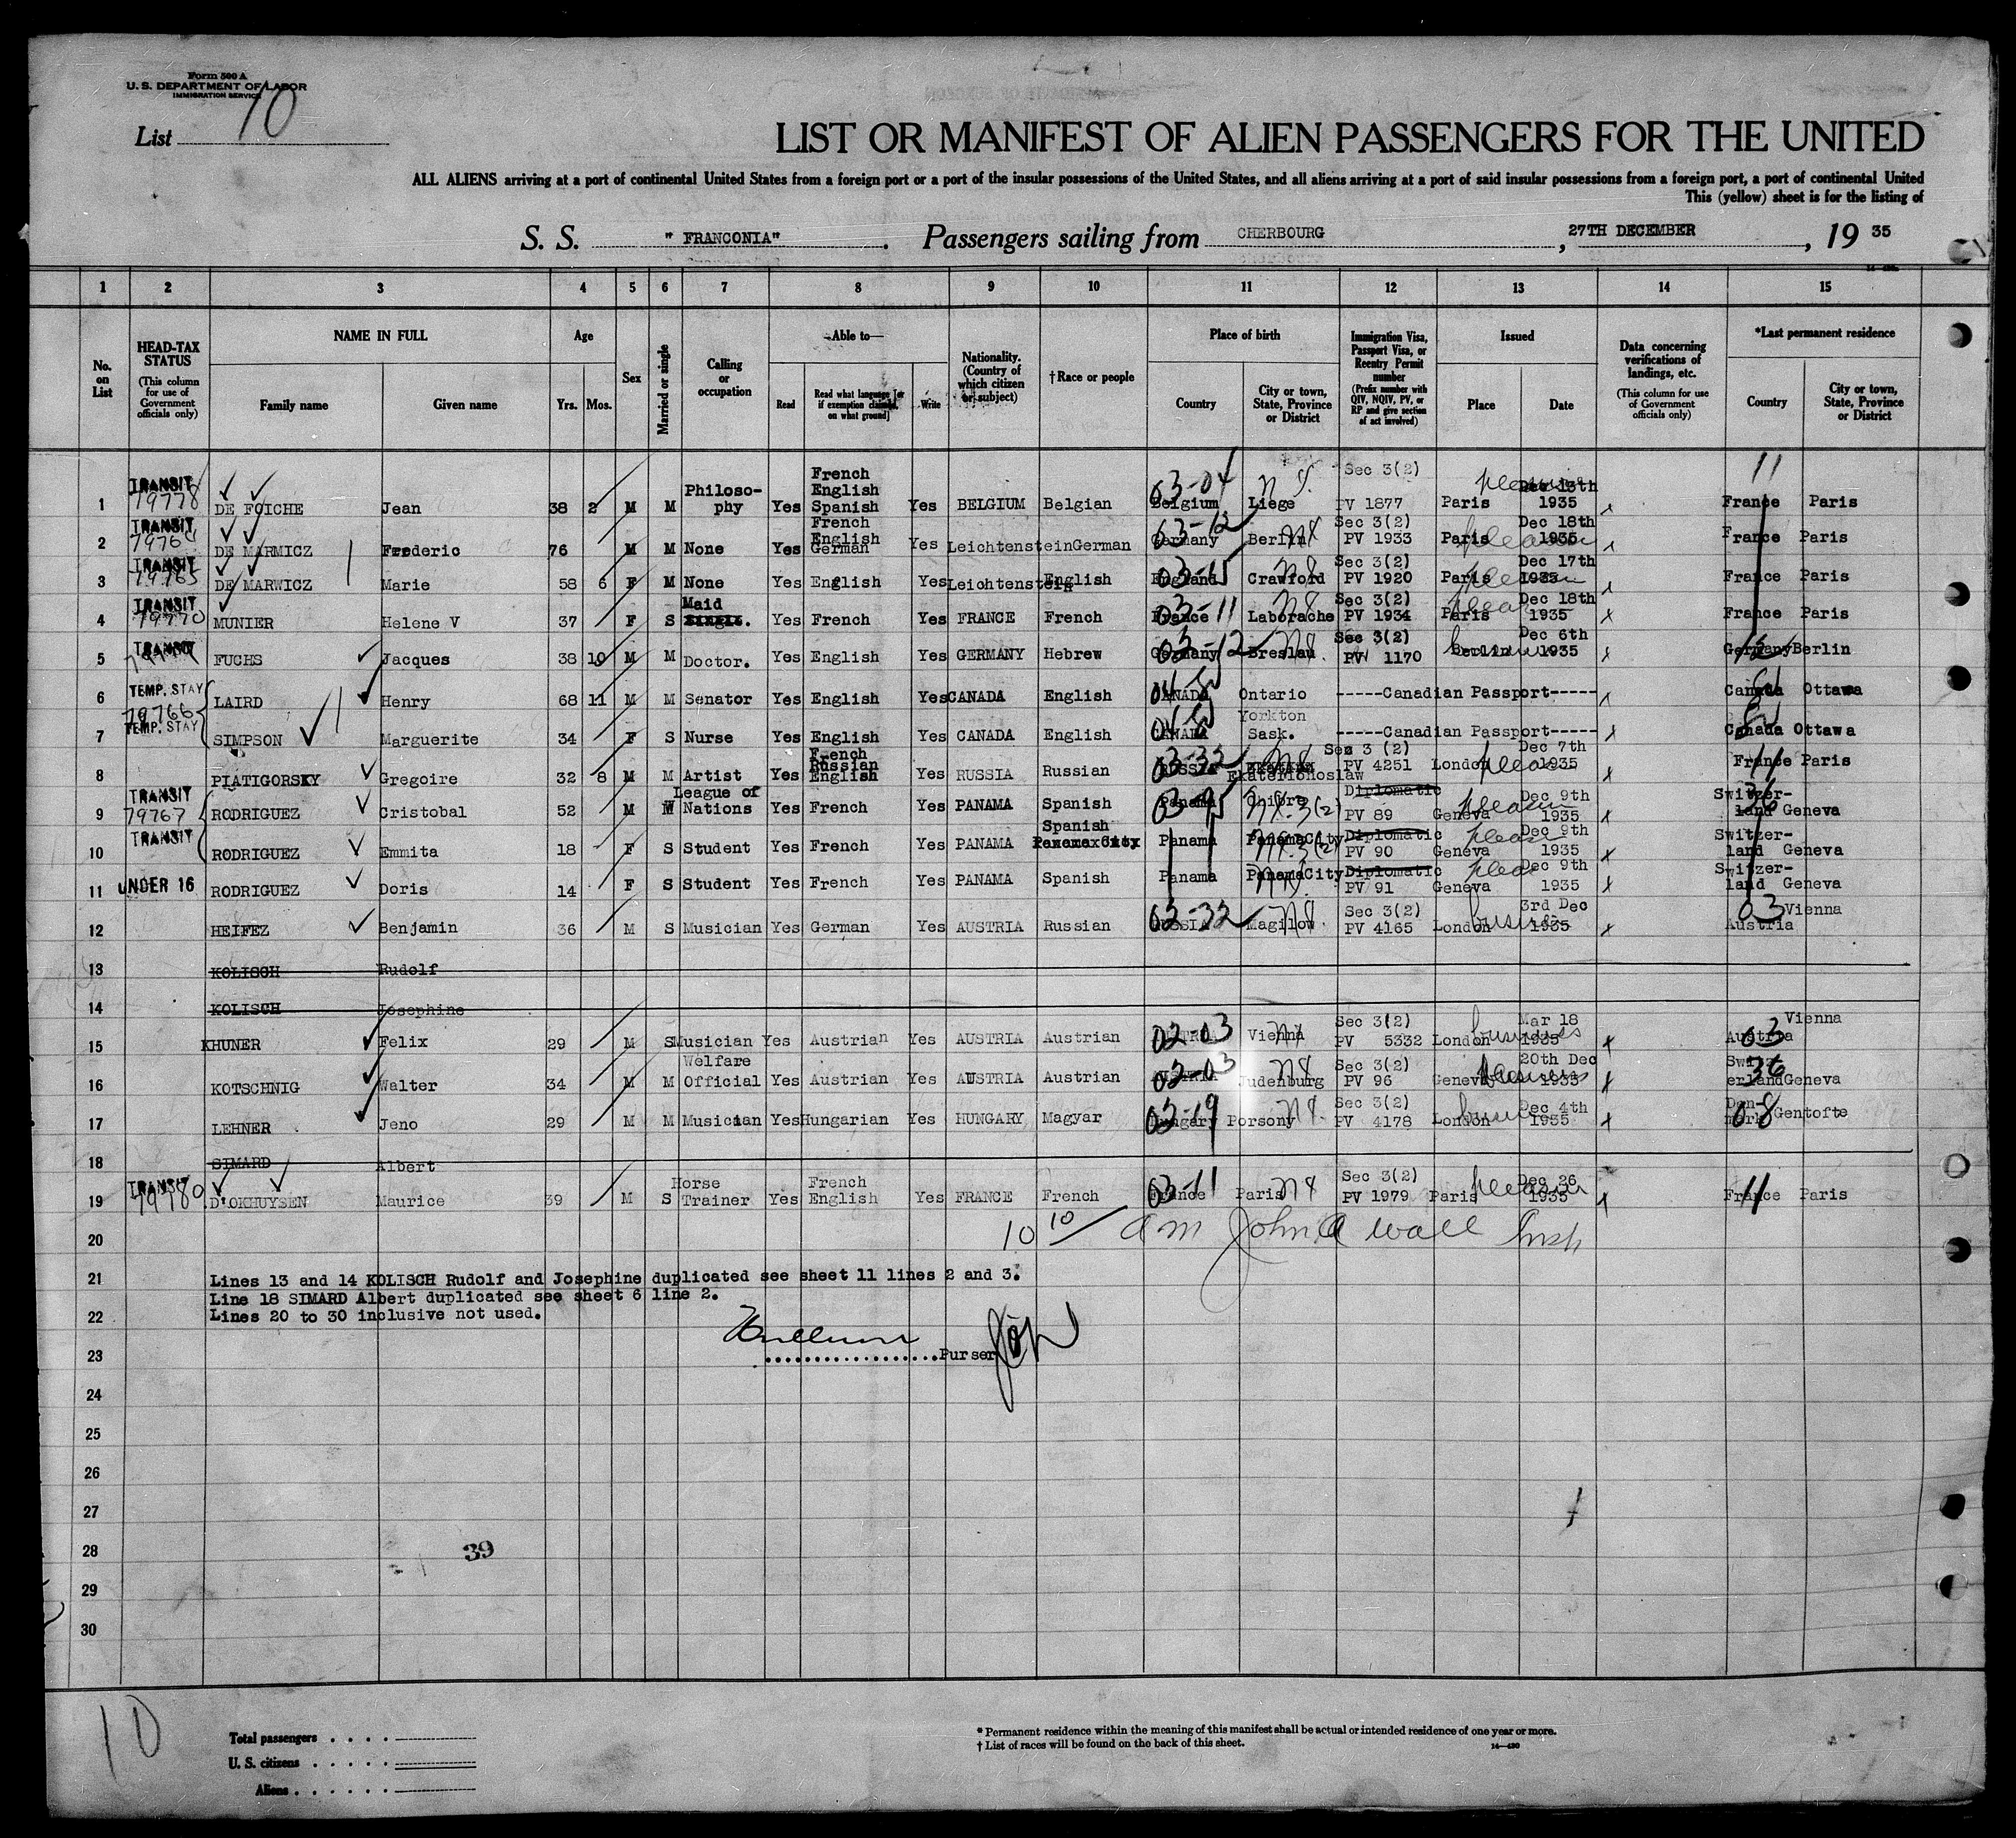 Form 500 A
U. S. DEPARTMENT OF LABOR
IMMIGRATION SERVICE
List 10
LIST OR MANIFEST OF ALIEN PASSENGERS FOR THE UNITED
ALL ALIENS arriving at a port of continental United States from a foreign port or a port of the insular possessions of the United States, and all aliens arriving at a port of said insular possessions from a foreign port, a port of continental United
This (yellow) sheet is for the listing of
S. S. " FRANCONIA" . Passengers sailing from CHERBOURG , 27TH DECEMBER , 19 35
1 2 3 4 5 6 7 8 9 10 11 12 13 14 15
No. on List
HEAD-TAX STATUS (This column for use of Government officials only)
NAME IN FULL
Family name Given name
Age
Yrs. Mos.
Sex
Married or single
Calling or occupation
Able to—
Read Read what language [or if exemption claimed, on what ground] Write
Nationality. (Country of which citizen or subject)
†Race or people
Place of birth
Country City or town, State, Province or District
Immigration Visa, Passport Visa, or Reentry Permit number (Prefix number with QIV, NQIV, PV, or RP and give section of act involved)
Issued
Place Date
Data concerning verifications of landings, etc. (This column for use of Government officials only)
*Last permanent residence
Country City or town, State, Province or District
1 TRANSIT 79778 DE FOICHE Jean 38 2 M M Philoso-phy Yes French English Spanish Yes BELGIUM Belgian 03-04 Belgium Liege Sec 3(2) PV 1877 Paris Dec 13th 1935 France 11 Paris
2 TRANSIT DE MARMICZ Frederic 76 M M None Yes French English German Yes Leichtenstein German 03-12 Germany Berlin Sec 3(2) PV 1933 Paris Dec 18th 1935 France Paris
3 TRANSIT 79765 DE MARWICZ Marie 58 6 F M None Yes English Yes Leichtenstein English 03-15 England Crawford Sec 3(2) PV 1920 Paris Dec 17th 1935 France Paris
4 TRANSIT 79770 MUNIER Helene V 37 F S Maid Yes French Yes FRANCE French 03-11 France Laborache Sec 3(2) PV 1934 Paris Dec 18th 1935 France Paris
5 TRANSIT FUCHS Jacques 38 10 M M Doctor. Yes English Yes GERMANY Hebrew 03-12 Germany Breslau Sec 3(2) PV 1170 Berlin Dec 6th 1935 Germany 12 Berlin
6 TEMP. STAY 79766 LAIRD Henry 68 11 M M Senator Yes English Yes CANADA English CANADA Ontario -----Canadian Passport----- Canada Ottawa
7 TEMP. STAY SIMPSON Marguerite 34 F S Nurse Yes English Yes CANADA English CANADA Yorkton Sask. -----Canadian Passport----- Canada Ottawa
8 PIATIGORSKY Gregoire 32 8 M M Artist Yes French Russian English Yes RUSSIA Russian 03-32 RUSSIA Ekaterinoslaw Sec 3 (2) PV 4251 London Dec 7th 1935 France 11 Paris
9 TRANSIT 79767 RODRIGUEZ Cristobal 52 M League of Nations Yes French Yes PANAMA Spanish Panama Diplomatic PV 89 Geneva Dec 9th 1935 Switzer-land 36 Geneva
10 TRANSIT RODRIGUEZ Emmita 18 F S Student Yes French Yes PANAMA Spanish Panama Panama City Diplomatic PV 90 Geneva Dec 9th 1935 Switzer-land Geneva
11 UNDER 16 RODRIGUEZ Doris 14 F S Student Yes French Yes PANAMA Spanish Panama Panama City Diplomatic PV 91 Geneva Dec 9th 1935 Switzer-land Geneva
12 HEIFEZ Benjamin 36 M S Musician Yes German Yes AUSTRIA Russian 02-32 RUSSIA Magilow Sec 3(2) PV 4165 London 3rd Dec 1935 03 Austria Vienna
13 KOLISCH Rudolf
14 KOLISCH Josephine
15 KHUNER Felix 29 M S Musician Yes Austrian Yes AUSTRIA Austrian 02-03 AUSTRIA Vienna Sec 3(2) PV 5332 London Mar 18 1935 business Austria 03 Vienna
16 KOTSCHNIG Walter 34 M M Welfare Official Yes Austrian Yes AUSTRIA Austrian 02-03 AUSTRIA Judenburg Sec 3(2) PV 96 Geneva 20th Dec 1935 Switz-erland 36 Geneva
17 LEHNER Jeno 29 M M Musician Yes Hungarian Yes HUNGARY Magyar 02-19 Hungary Porsony Sec 3(2) PV 4178 London Dec 4th 1935 Den-mark 08 Gentofte
18 SIMARD Albert
19 TRANSIT 79780 D'OKHUYSEN Maurice 39 M S Horse Trainer Yes French English Yes FRANCE French 03-11 France Paris Sec 3(2) PV 1979 Paris Dec 26 1935 France 11 Paris
20 10 10/ am John A Wall Insp
21 Lines 13 and 14 KOLISCH Rudolf and Josephine duplicated see sheet 11 lines 2 and 3.
Line 18 SIMARD Albert duplicated see sheet 6 line 2.
22 Lines 20 to 30 inclusive not used.
23 ....................Purser
24
25
26
27
28 39
29
30
10
Total passengers . . . .
U. S. citizens . . . . .
Aliens . . . . . .
* Permanent residence within the meaning of this manifest shall be actual or intended residence of one year or more.
† List of races will be found on the back of this sheet.
14—430